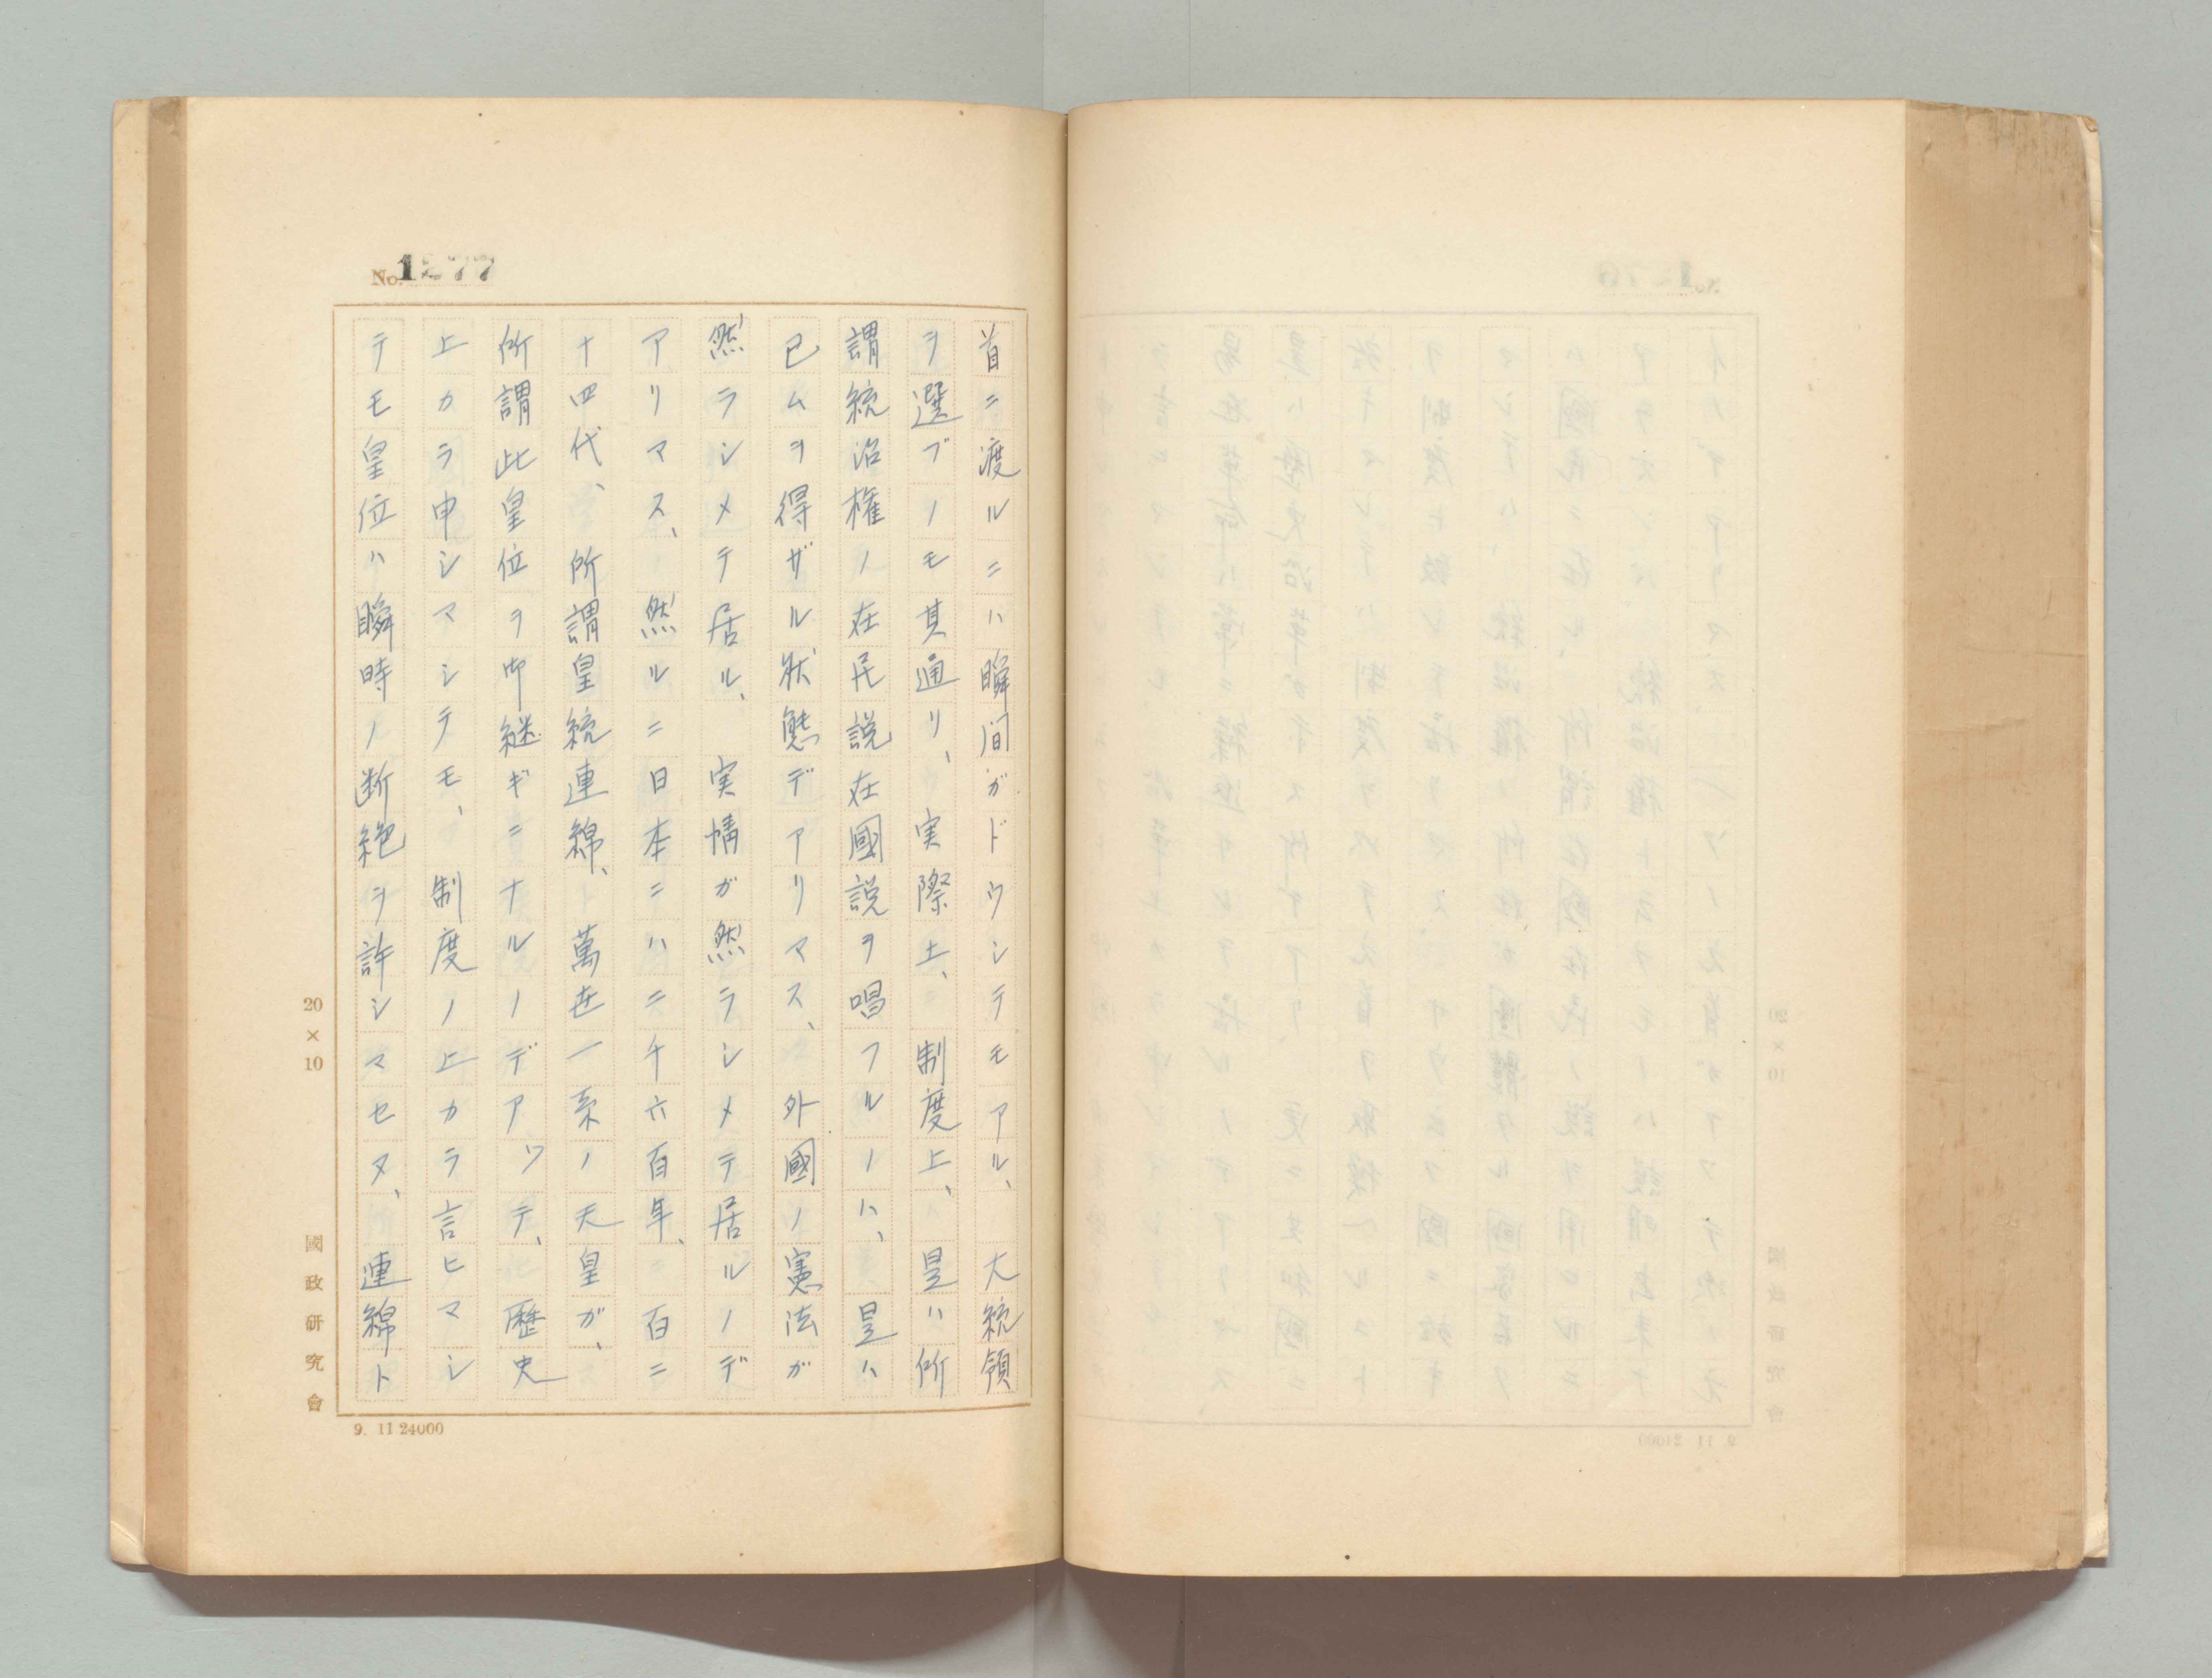 No. 1277
首ニ渡ルニハ瞬间ガドウシテモアル、大統領
ヲ選ブノモ其通リ、実際上、制度上、是ハ所
謂統治権ノ在民説在國説ヲ唱フルノハ、是ハ
已ムヲ得ザル狀態デアリマス、外國ノ憲法ガ
然ラシメテ居ル、実情ガ然ラシメテ居ルノデ
アリマス、然ルニ日本ニハ二千六百年、百二
十四代、所謂皇統連綿、萬世一系ノ天皇ガ、
所謂此皇位ヲ御継ギニナルノデアツテ、歷史
上カラ申シマシテモ、制度ノ上カラ言ヒマシ
テモ皇位ハ瞬時ノ断絶ヲ許シマセヌ、連綿ト
20×10
國政研究會
9. 11 24000